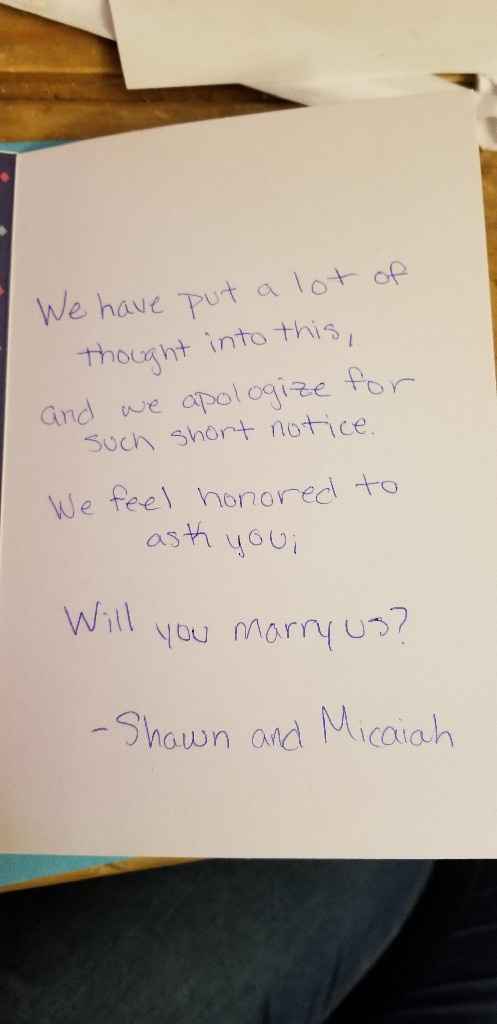 We have put a lot of
thought into this,
and we apologize for
such short notice.
We feel honored to
ask you;
Will you marry us?
-Shawn and Micaiah